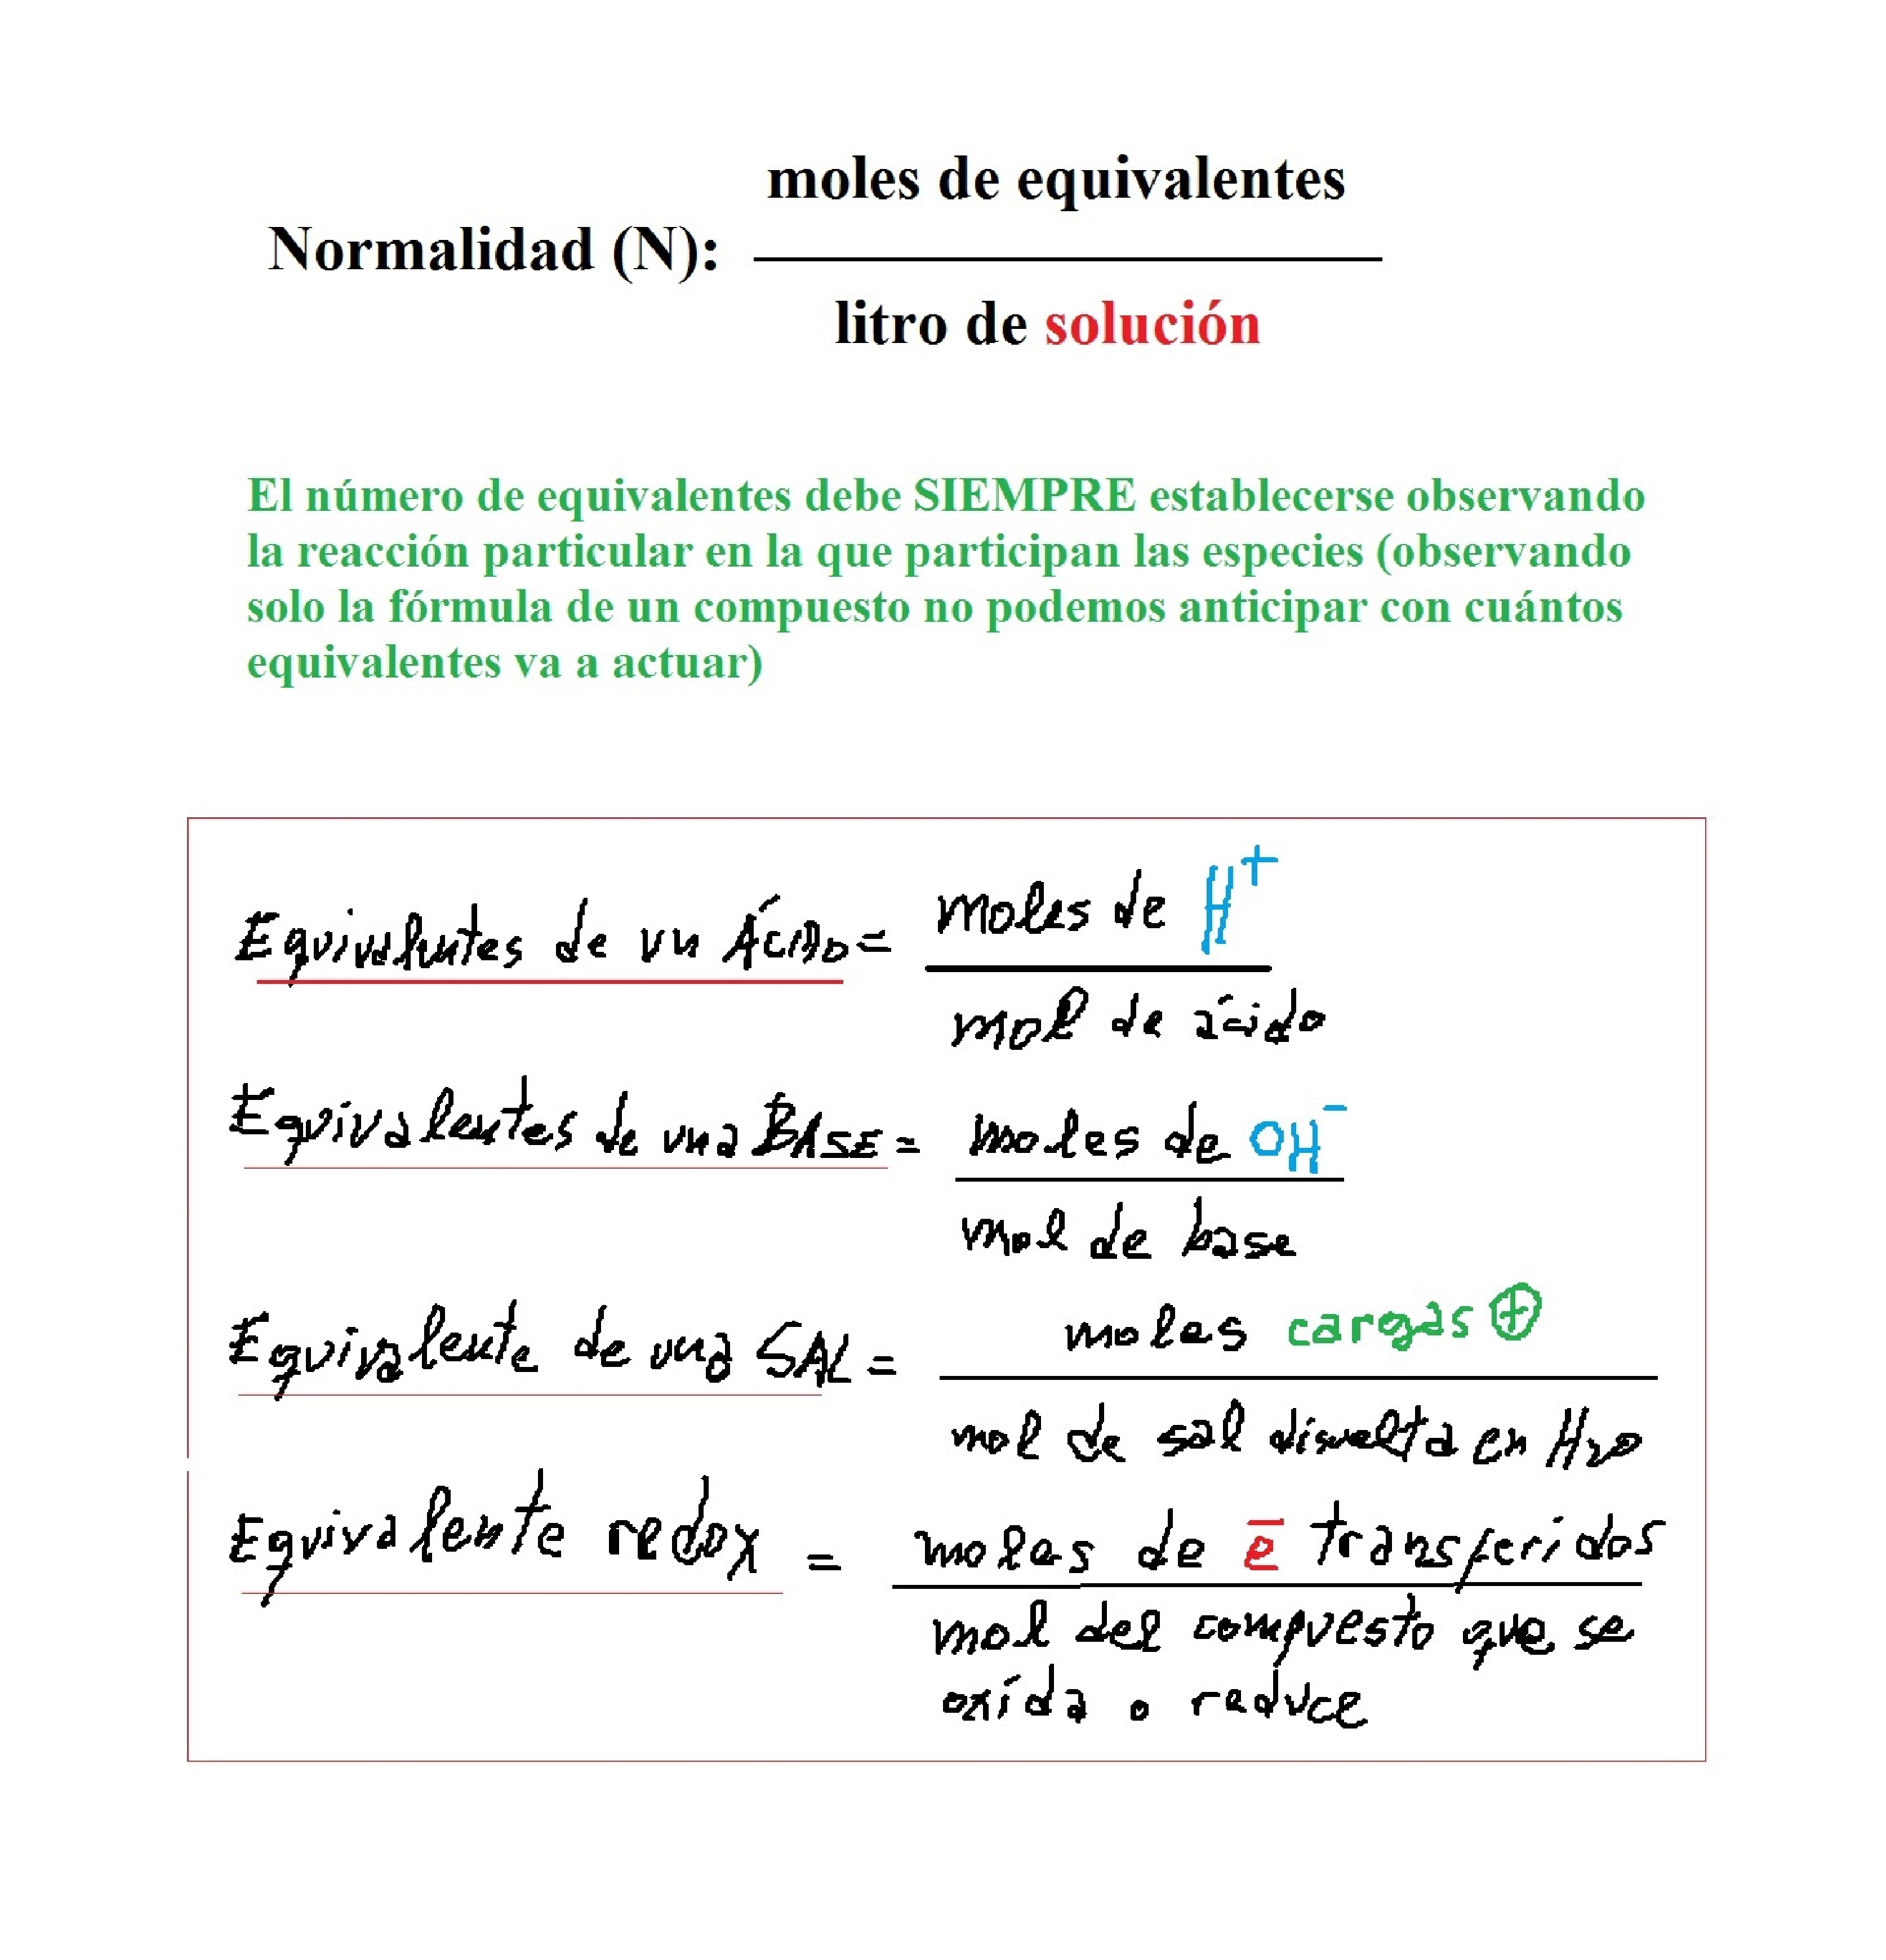 moles de equivalentes
Normalidad (N):
litro de solución
El número de equivalentes debe SIEMPRE establecerse observando
la reacción particular en la que participan las especies (observando
solo la fórmula de un compuesto no podemos anticipar con cuántos
equivalentes va a actuar)
Equivalentes de un ÁCIDO = moles de H⁺
mol de ácido
Equivalentes de una BASE = moles de OH⁻
mol de base
Equivalente de una SAL = moles cargas ⊕
mol de sal disuelta en H₂O
Equivalente redox = moles de e̅ transferidos
mol del compuesto que se
oxida o reduce